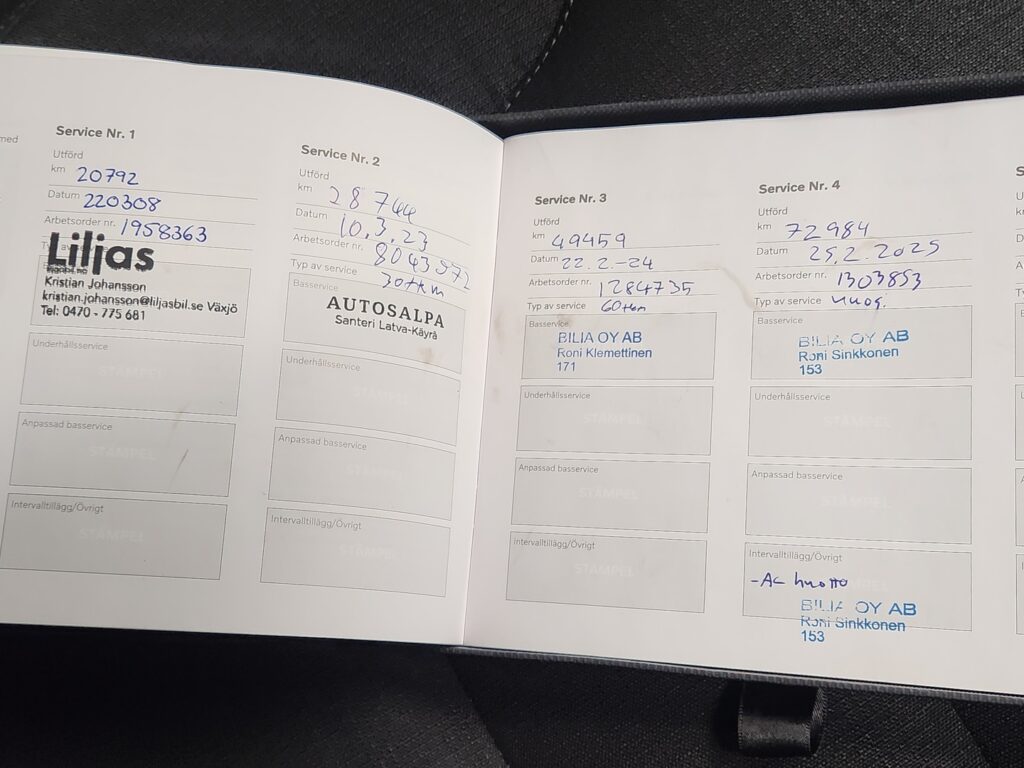 Service Nr. 1
Utförd
km 20792
Datum 220308
Arbetsorder nr. 1958363
Liljas
Kristian Johansson
kristian.johansson@liljasbil.se Växjö
Tel: 0470 - 775 681
Underhållsservice
STÄMPEL
Anpassad basservice
STÄMPEL
Intervalltillägg/Övrigt
STÄMPEL
Service Nr. 2
Utförd
km 28 744
Datum 10.3.23
Arbetsorder nr. 8043972
Typ av service 30tkm
Basservice
AUTOSALPA
Santeri Latva-Käyrä
Underhållsservice
STÄMPEL
Anpassad basservice
STÄMPEL
Intervalltillägg/Övrigt
STÄMPEL
Service Nr. 3
Utförd
km 49459
Datum 22.2.-24
Arbetsorder nr. 1284735
Typ av service 60tkm
Basservice
BILIA OY AB
Roni Klemettinen
171
Underhållsservice
STÄMPEL
Anpassad basservice
STÄMPEL
Intervalltillägg/Övrigt
STÄMPEL
Service Nr. 4
Utförd
km 72984
Datum 25.2.2025
Arbetsorder nr. 1303853
Typ av service vuos.
Basservice
BILIA OY AB
Roni Sinkkonen
153
Underhållsservice
STÄMPEL
Anpassad basservice
STÄMPEL
Intervalltillägg/Övrigt
-AC huolto
BILIA OY AB
Roni Sinkkonen
153